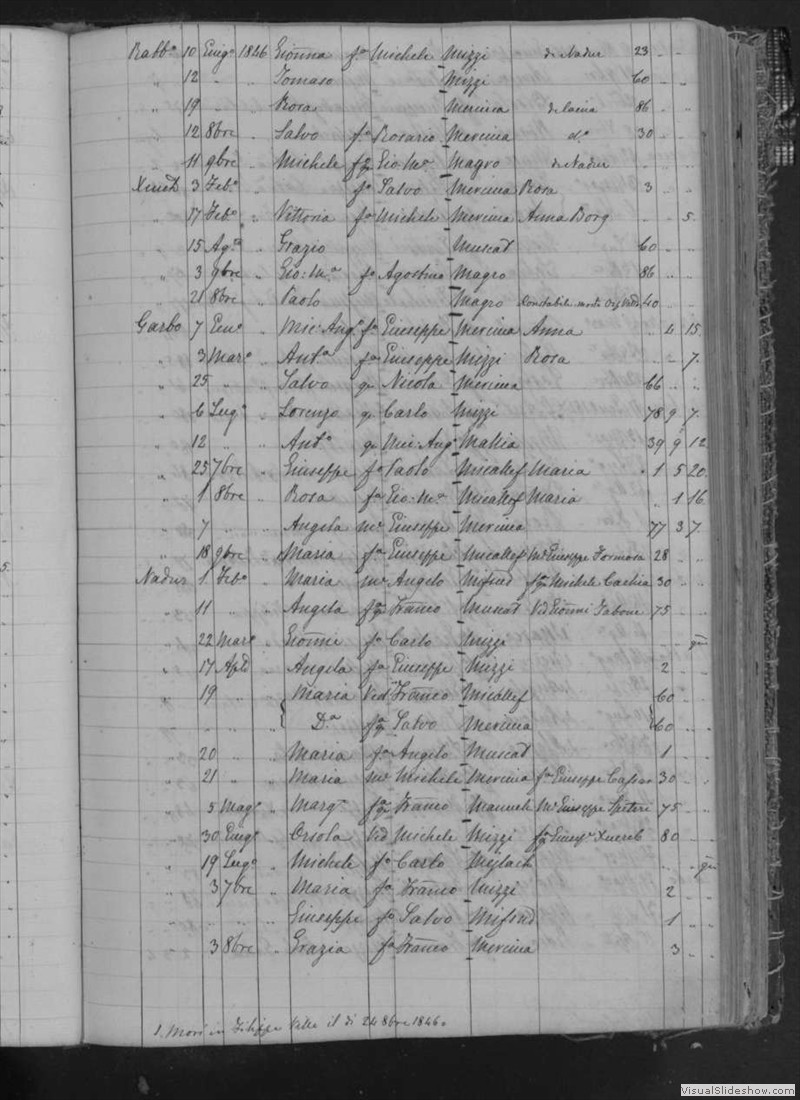 Rabbo 10 Giugo 1846 Gionna fa Michele Mizzi de Nadur 23
12 Tomaso Mizzi 60
19 Rosa Mercieca 86
12 8bre Salvo fo Rosario Mercieca do 30
11 9bre Michele Gio Ma Magro de Nadur
3 Febo fo Salvo Mercieca Rosa 3
17 Febo Vittoria fa Michele Mercieca Anna Borg 5
15 Ago Grazio Muscat 60
3 9bre Gio: Ma fo Agostino Magro 86
21 8bre Paolo Magro 40
Garbo 7 Geno Mic: Ango fo Giuseppe Mercieca Anna 4 15
3 Maro Anto fo Giuseppe Mizzi Rosa 7
25 Salvo qm Nicola Mercieca 66
6 Lugo Lorenzo qm Carlo Mizzi 78 9 7
12 Anto qm Mic: Ango Mallia 39 9 12
25 7bre Giuseppe fo Paolo Micallef Maria 1 5 20
1 8bre Rosa fa Gio: Ma Micallef Maria 1 16
7 Angela me Giuseppe Mercieca 77 3 7
18 9bre Maria fa Giuseppe Micallef me Giuseppe Formosa 28
Nadur 1 Febo Maria me Angelo Mifsud Michele Cachia 30
11 Angela Franco Muscat Vid Gionni Tabone 75
22 Maro Gionni fo Carlo Mizzi
17 Aple Angela fa Giuseppe Mizzi 2
19 Maria Vid Franco Micallef 60
Da Salvo Mercieca 60
20 Maria fa Angelo Muscat 1
21 Maria me Michele Mercieca fa Giuseppe Cassar 30
5 Mago Marga Franco me Giuseppe Spiteri 75
30 Giugo Orsola Vid Michele Mizzi Xuereb 80
19 Lugo Michele fo Carlo
3 7bre Maria fa Franco Mizzi 2
Giuseppe fo Salvo Mifsud 1
3 8bre Grazia fa Franco Mercieca 3
1. Morì in il di 24 8bre 1846.
VisualSlideshow.com